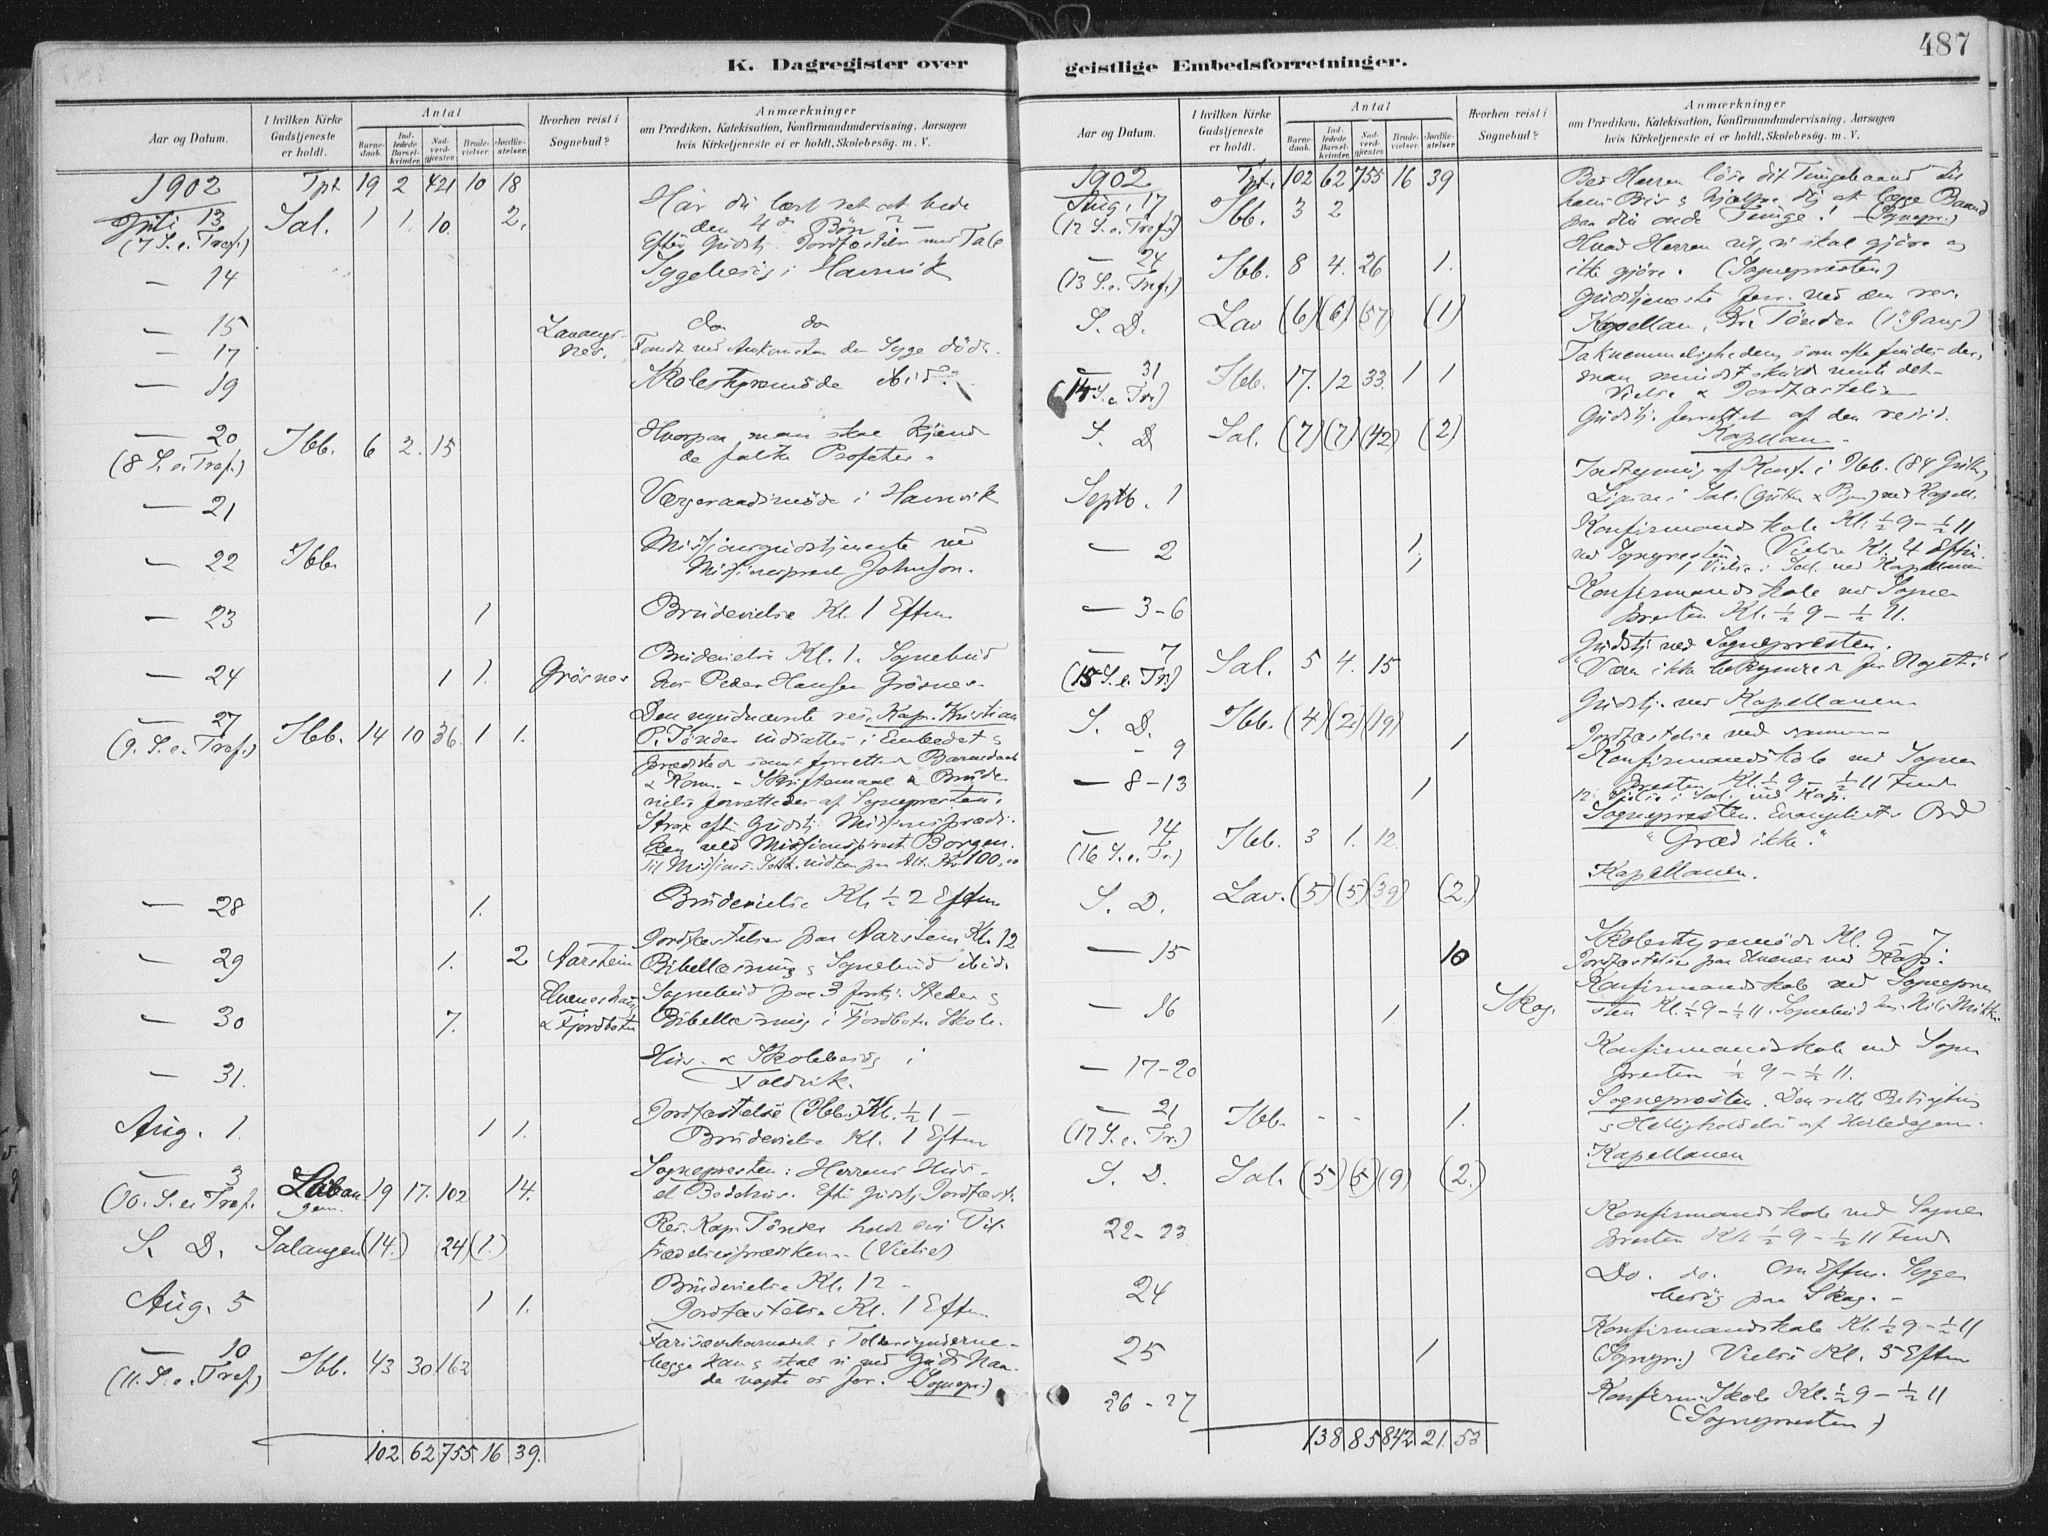 K. Dagregister over
Aar og Datum.
I hvilken Kirke Gudstjeneste er holdt.
Antal
Barnedaab.
Indledede Barselkvinder.
Nadverdgjæster.
Brudevielser.
Jordfæstelser.
Hvorhen reist i Sognebud?
Anmærkninger
om Prædiken, Katekisation, Konfirmandundervisning, Aarsagen
hvis Kirketjeneste ei er holdt, Skolebesög. m. V.
1902 Tpt 19 2 421 10 18
Juli 13 Sal. 1 1. 10. 2. Har du lært ret at bede
(7 S. e. Tref.) den 4de Bön?
Efter Gudstj. Jordfæstelse med Tale
— 14 Sygebesög i Havnvik
— 15 do do
— 17 Lavangsnes. Fandt ved Ankomsten den Syge död.
— 19 Skolestyremöde ibid.
— 20 Ibb. 6 2. 15 Hvorpaa man skal kjende
(8 S. e. Tref.) de falske Profeter.
— 21 Værgeraadsmöde i Havnvik
— 22 Ibb. Missionsgudstjeneste ved
Missionsprest Johnson.
— 23 1 Brudevielse Kl. 1 Efterm
— 24 1 1. Grösnes Brudevielse Kl. 1. Sognebud
hos Peder Hansen Grösnes.
— 27 Ibb. 14 10 36. 1 1. Den nyudnævnte res. Kap. Kristian
(9. S. e. Tref.) P. Tönder indsattes i Embedet &
prædiked samt forrettede Barnedaab
& Kom. – Skriftemaal & Brude-
vielse forrettedes af Sognepresten.
Strax efter Gudstj. Missionsprædi-
ken ved Missionsprest Borgen.
Til Missions-Selsk. indkom paa Alt. Kr 100,00
— 28 1. Brudevielse Kl. ½ 2 Efterm
Jordfæstelser paa Aarstein Kl. 12
— 29 1. 2 Aarstein Bibellæsning & Sognebud ibid.
Sognebud paa 3 forskj. Steder &
— 30 7. & Fjordbotn Bibellæsning i Fjordbotn Skole.
— 31. Hus- & Skolebesög i
Foldvik.
Aug. 1. 1 1. Jordfæstelse (Ibb.) Kl. ½ 1 –
Brudevielse Kl. 1 Efterm
— 3 Lavangen. 19 17. 102 14. Sognepresten: Herrens Hus
(10. S. e. Tref. et Bedehus. Efter Gudstj. Jordfæst.
S. D. Salangen (14.) (24) (1.) Res. Kap. Tönder holdt sin Til-
trædelsesprædiken. (Vielse)
Aug. 5 1 1. Brudevielse Kl. 12 –
Jordfæstelse Kl. 1 Efterm
— 10 Ibb. 43 30 162
(11. S. e. Tref.) begge Han & skal vi ved Guds Naa-
de vogte os for. (Sognepr.)
102 62 755 16 39.
geistlige Embedsforretninger.
487
Aar og Datum.
I hvilken Kirke Gudstjeneste er holdt.
Antal
Barnedaab.
Indledede Barselkvinder.
Nadverdgjæster.
Brudevielser.
Jordfæstelser.
Hvorhen reist i Sognebud?
Anmærkninger
om Prædiken, Katekisation, Konfirmandundervisning, Aarsagen
hvis Kirketjeneste ei er holdt, Skolebesög. m. V.
1902 Tpt. 102 62 755 16 39 Bed Herren löse dit Tungebaand til
Aug. 17 Ibb. 3 2 hans Pris & hjælpe dig at lægge Baand
(12 S. e. Tref.) paa din onde Tunge! – (Sognepr.)
— 24 Ibb. 8 4. 26 1. Hvad Herren vil, vi skal gjöre og
(13 S. e. Tref.) ikke gjöre. (Sognepresten)
S. D. Lav (6) (6) (57) (1) Gudstjeneste forr. ved den res.
Kapellan, Kr. Tönder (1ste Gang)
— 31 Ibb. 17. 12 33. 1 1 Taknemmeligheden som ofte findes der,
(14 S. e. Tr.) man mindst skulde vente det –
Vielse & Jordfæstelse
S. D Sal. (7) (7) (42) (2) Gudstj. forrettet af den resid.
Kapellan –
Septb. 1 Indtegning af Konf. i Ibb. (84 Gutter,
Konfirmandskole Kl. ½ 9 – ½ 11
— 2 1. ved Sognepresten. Vielse Kl. 4 Efterm.
1 1 Vielse i Sal. ved Kapellanen
— 3-6 Konfirmandskole ved Sogne-
presten Kl. ½ 9 – ½ 11.
— 7 Sal. 5 4. 15 Gudstj. ved Sognepresten.
(15 S. e. Tr.) "Vær ikke bekymret for Noget."
S. D. Ibb. (4) (2) (19) Gudstj. ved Kapellanen
- 9 1 Jordfæstelse ved samme
— 8-13 1 Konfirmandskole ved Sogne-
presten Kl. ½ 9 – ½ 11 Form
12. Vielse i Sal. ved Kap.
— 14 Ibb. 3 1. 12. Sognepresten. Evangeliets Ord
(16 S. e. Tr.) "Græd ikke."
S. D. Lav. (5) (5) (39) (2.) Kapellanen.
— 15 10 Skolestyremöde Kl. 9 – 7.
Jordfæstelse paa Elvenes ved Kap.
— 16 1. Skog. Konfirmandskole ved Sognepre-
sten Kl. ½ 9 – ½ 11. Sognebud
— 17-20 Konfirmandskole ved Sogne-
presten ½ 9 – ½ 11.
— 21 Ibb. - - 1. Sognepresten. Den rette Betragtning
(17 S. e. Tr.) & Helligholdelse af Hviledagen.
S. D. Sal. (5) (5) (9) (2.) Kapellanen
22-23 Konfirmandskole ved Sogne-
presten Kl. ½ 9 – ½ 11 Form
24 Do. do. Om Efterm. Syge-
besög paa Skog. –
25 1 Konfirmandskole Kl. ½ 9 – ½ 11
(Sognepr.) Vielse Kl. 5 Efterm
26-27 Konfirm. Skole Kl. ½ 9 – ½ 11
(Sognepresten)
138 85 842 21. 53